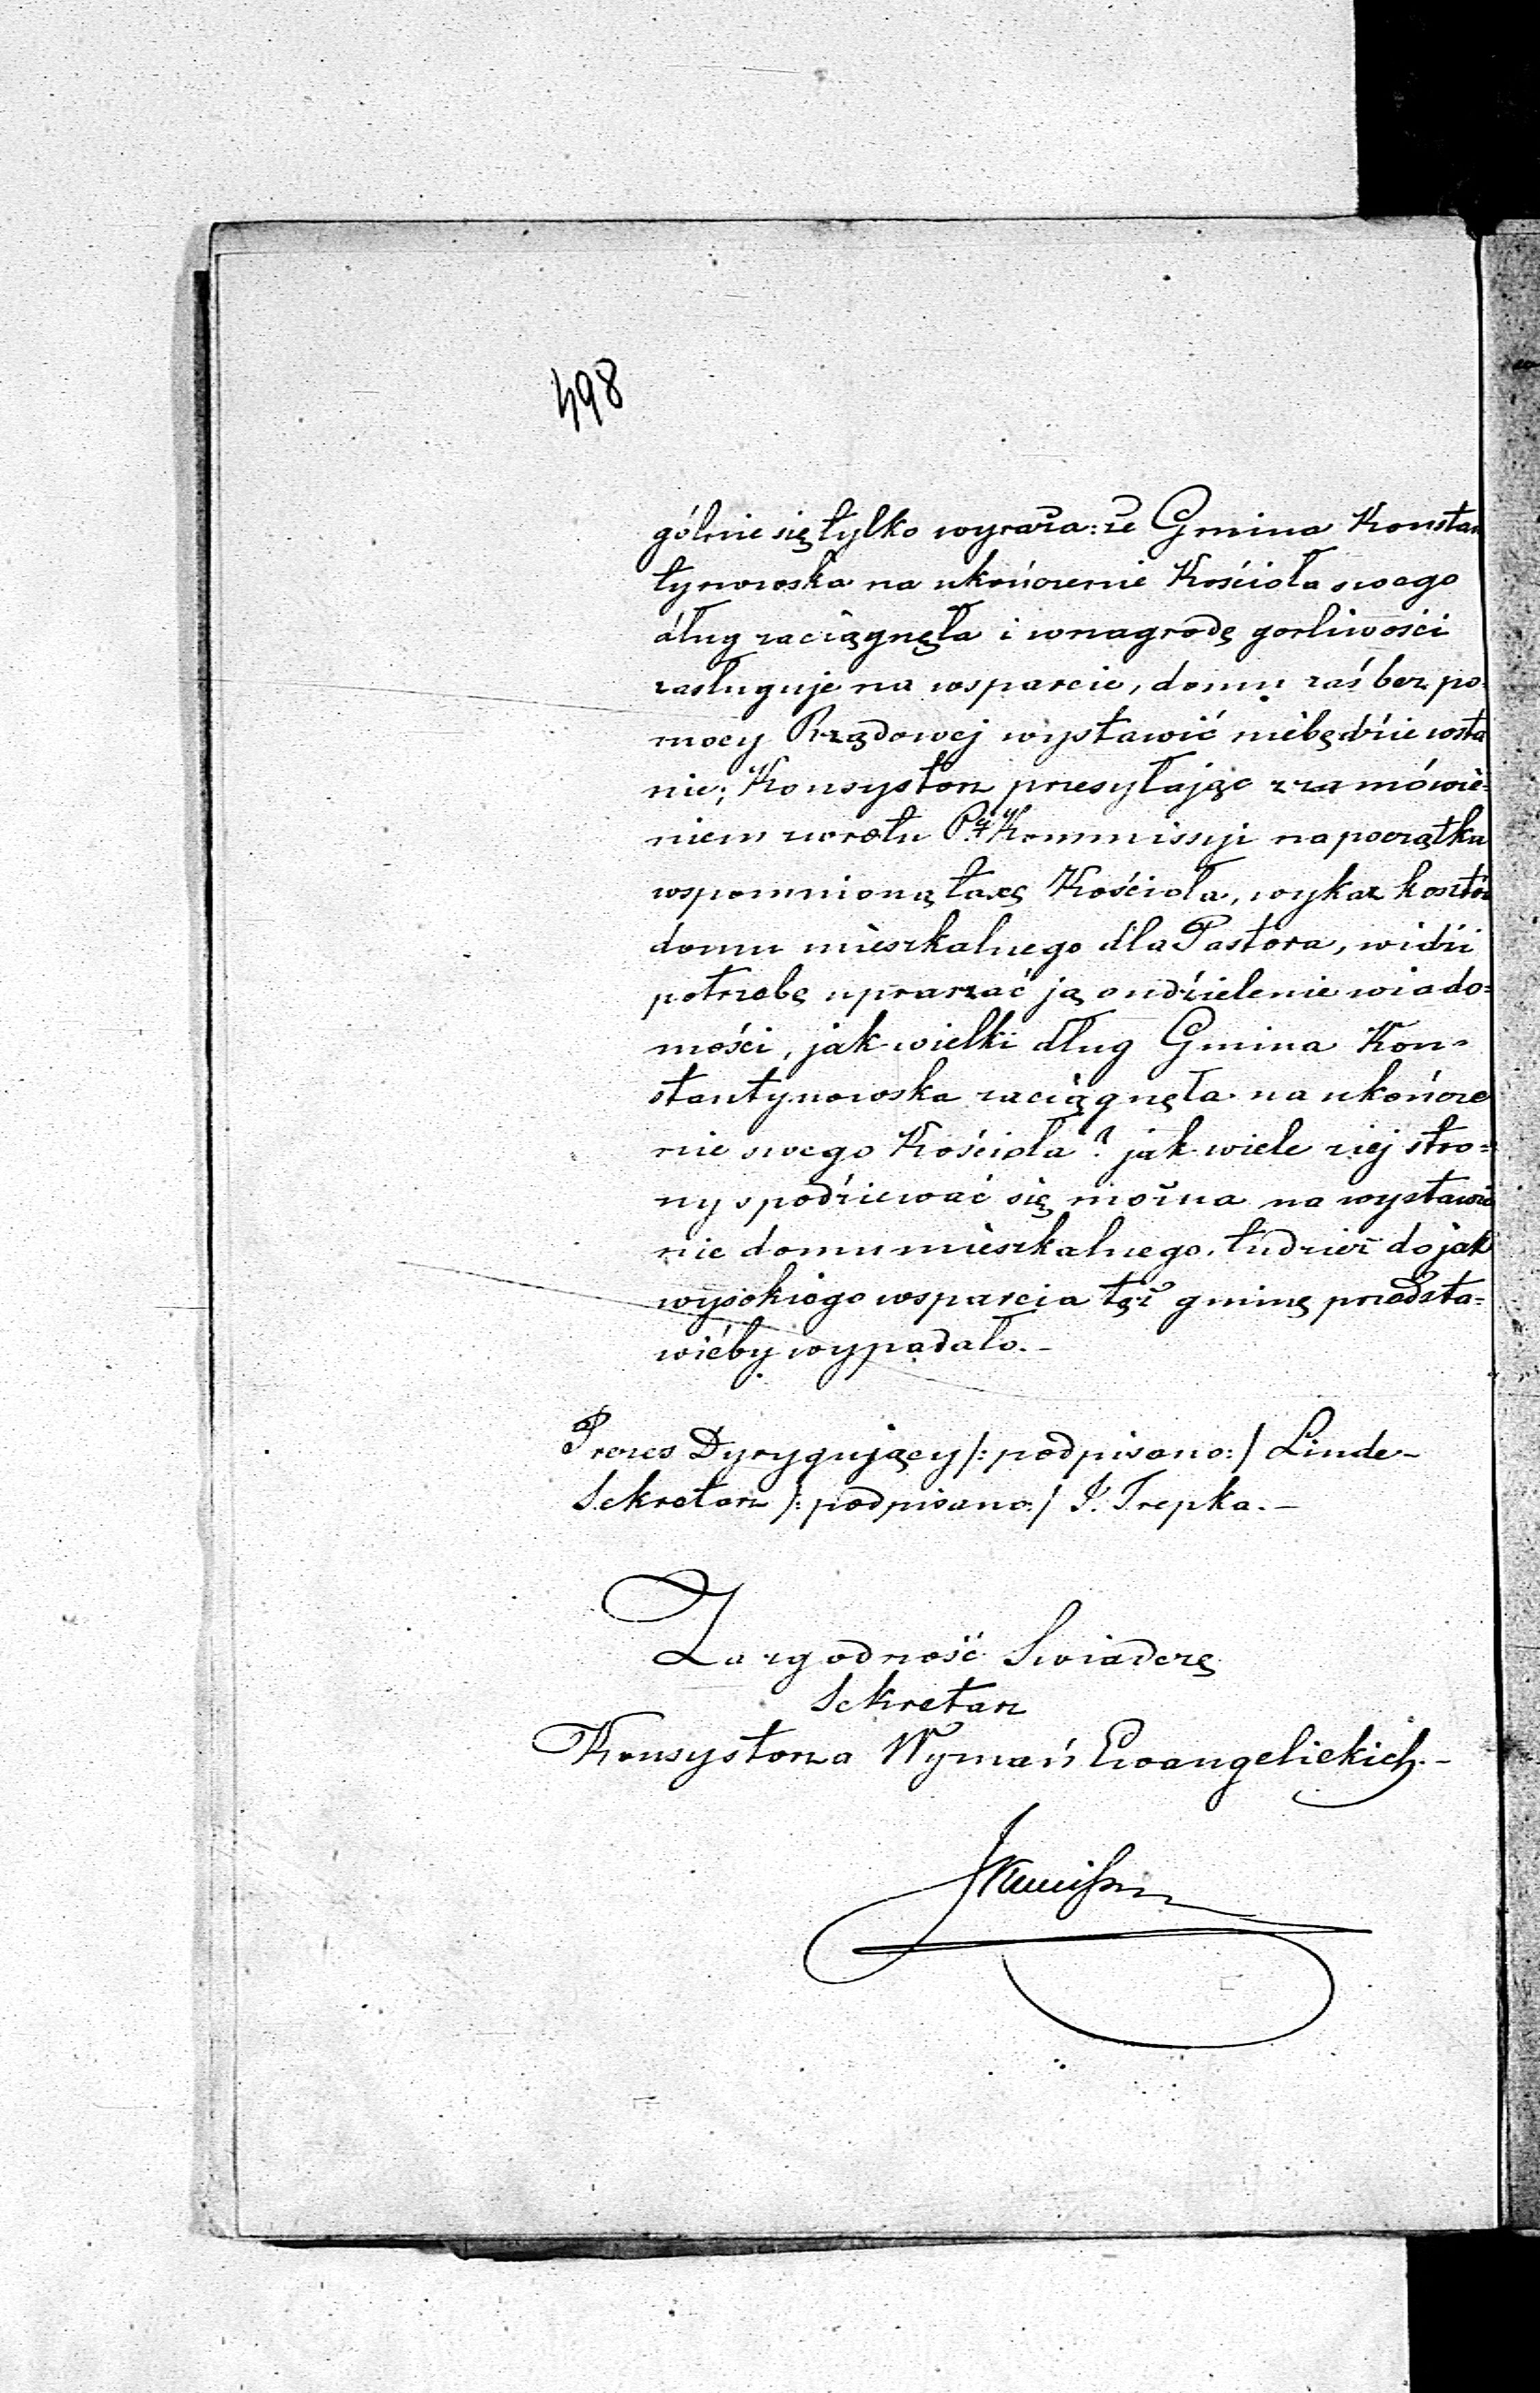 498
gólnie się tylko wyraża: że Gmina Konstan
tynowska na ukończenie Kościoła swego
dług zaciągnęła i wnagrodę gorliwości
zasługuje na wsparcie, domu zaś bez po-
mocy Rządowej wystawić niebędzie wsta
nie; Konsystorz przesyłając z zamówie-
niem zwrotu Kommissyi na początku
wspomnioną taxę Kościoła, wykaz kosztów
domu mieszkalnego dla Pastora, widzi
potrzebę upraszać ją oudzielenie wiado=
mości, jak wielki dług Gmina Kon-
stantynowska zaciągnęła na ukończe
nie swego Kościoła? jak wiele ziej stro=
ny spodziewać się można na wystawie
nie domu mieszkalnego, tudzież do jak
wysokiego wsparcia tęż gminę przedsta=
wićby wypadało.-
Prezes Dyrygujący /: podpisano :/ Linde-
Sekretarz /: podpisano :/ J. Trepka.-
Za zgodność Swiadczę
Sekretarz
Konsystorza Wyznań Ewangelickich.-